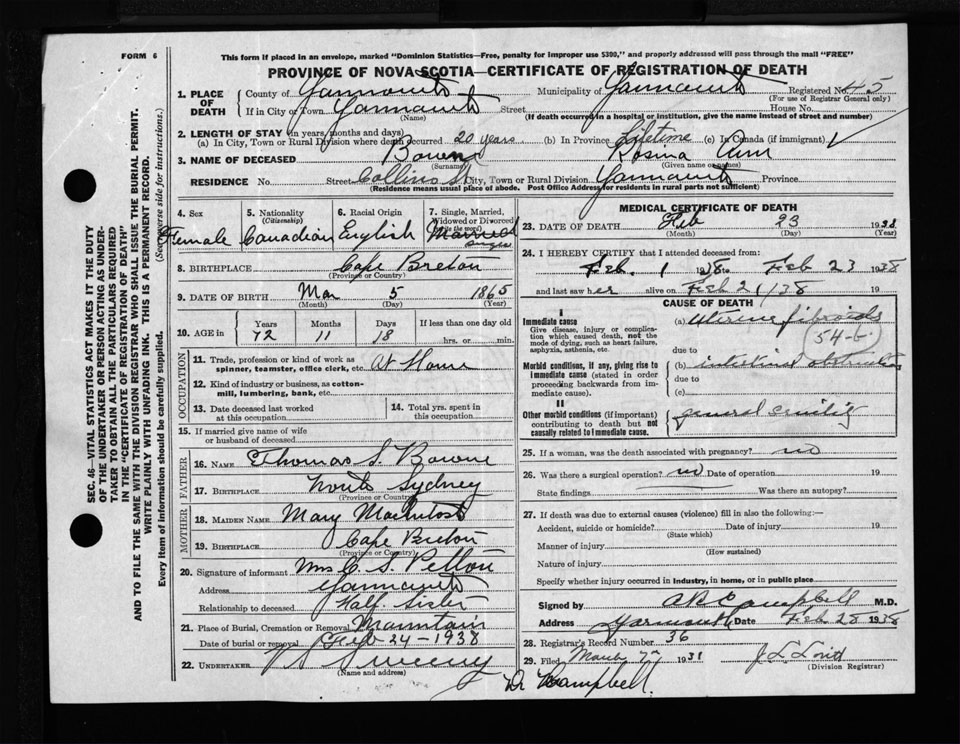 FORM 6
This form if placed in an envelope, marked "Dominion Statistics—Free, penalty for improper use $300," and properly addressed will pass through the mail "FREE"
PROVINCE OF NOVA SCOTIA—CERTIFICATE OF REGISTRATION OF DEATH
1. PLACE OF DEATH
County of Yarmouth Municipality of Yarmouth Registered No. 45
(For use of Registrar General only)
If in City or Town Yarmouth Street House No.
(Name) (If death occurred in a hospital or institution, give the name instead of street and number)
2. LENGTH OF STAY (in years, months and days)
(a) In City, Town or Rural Division where death occurred 20 years (b) In Province Lifetime (c) In Canada (if immigrant)
3. NAME OF DECEASED Bowne Rosina Ann
(Surname) (Given name or names)
RESIDENCE No. Street Collins St City, Town or Rural Division Yarmouth Province
(Residence means usual place of abode. Post Office Address for residents in rural parts not sufficient)
4. Sex Female
5. Nationality (Citizenship) Canadian
6. Racial Origin English
7. Single, Married, Widowed or Divorced (write the word) Married Single
8. BIRTHPLACE Cape Breton
(Province or Country)
9. DATE OF BIRTH Mar 5 1865
(Month) (Day) (Year)
10. AGE in Years Months Days If less than one day old
72 11 18 hrs. or min.
OCCUPATION
11. Trade, profession or kind of work as spinner, teamster, office clerk, etc. At Home
12. Kind of industry or business, as cotton-mill, lumbering, bank, etc.
13. Date deceased last worked at this occupation
14. Total yrs. spent in this occupation
15. If married give name of wife or husband of deceased
FATHER
16. NAME Thomas S. Bowne
17. BIRTHPLACE North Sydney
(Province or Country)
MOTHER
18. MAIDEN NAME Mary MacIntosh
19. BIRTHPLACE Cape Breton
(Province or Country)
20. Signature of informant Mrs C. S. Pelton
Address Yarmouth
Relationship to deceased Half Sister
21. Place of Burial, Cremation or Removal Mountain
Date of burial or removal Feb 24-1938
22. UNDERTAKER V S Sweeny
(Name and address)
MEDICAL CERTIFICATE OF DEATH
23. DATE OF DEATH Feb 23 1938
(Month) (Day) (Year)
24. I HEREBY CERTIFY that I attended deceased from
Feb. 1 1938 to Feb 23 1938
and last saw her alive on Feb 21/38 19
CAUSE OF DEATH
I
Immediate cause
Give disease, injury or complication which caused death, not the mode of dying, such as heart failure, asphyxia, asthenia, etc.
(a) Uterine fibroids
54-b
due to
Morbid conditions, if any, giving rise to immediate cause (stated in order proceeding backwards from immediate cause).
(b) intestinal obstruction
due to
(c)
II
Other morbid conditions (if important) contributing to death but not causally related to immediate cause.
general senility
25. If a woman, was the death associated with pregnancy? no
26. Was there a surgical operation? no Date of operation 19
State findings Was there an autopsy?
27. If death was due to external causes (violence) fill in also the following:—
Accident, suicide or homicide? Date of injury 19
(State which)
Manner of injury
(How sustained)
Nature of injury
Specify whether injury occurred in industry, in home, or in public place
Signed by A R Campbell M.D.
Address Yarmouth Date Feb 28 1938
28. Registrar's Record Number 36
29. Filed March 7th 1938 J. L. Lovitt
(Division Registrar)
Dr Campbell
SEC. 46—VITAL STATISTICS ACT MAKES IT THE DUTY
OF THE UNDERTAKER OR PERSON ACTING AS UNDERTAKER
TO OBTAIN ALL THE PARTICULARS REQUIRED
IN THE "CERTIFICATE OF REGISTRATION OF DEATH"
AND TO FILE THE SAME WITH THE DIVISION REGISTRAR WHO SHALL ISSUE THE BURIAL PERMIT.
WRITE PLAINLY WITH UNFADING INK. THIS IS A PERMANENT RECORD.
Every item of information should be carefully supplied. (See reverse side for instructions.)